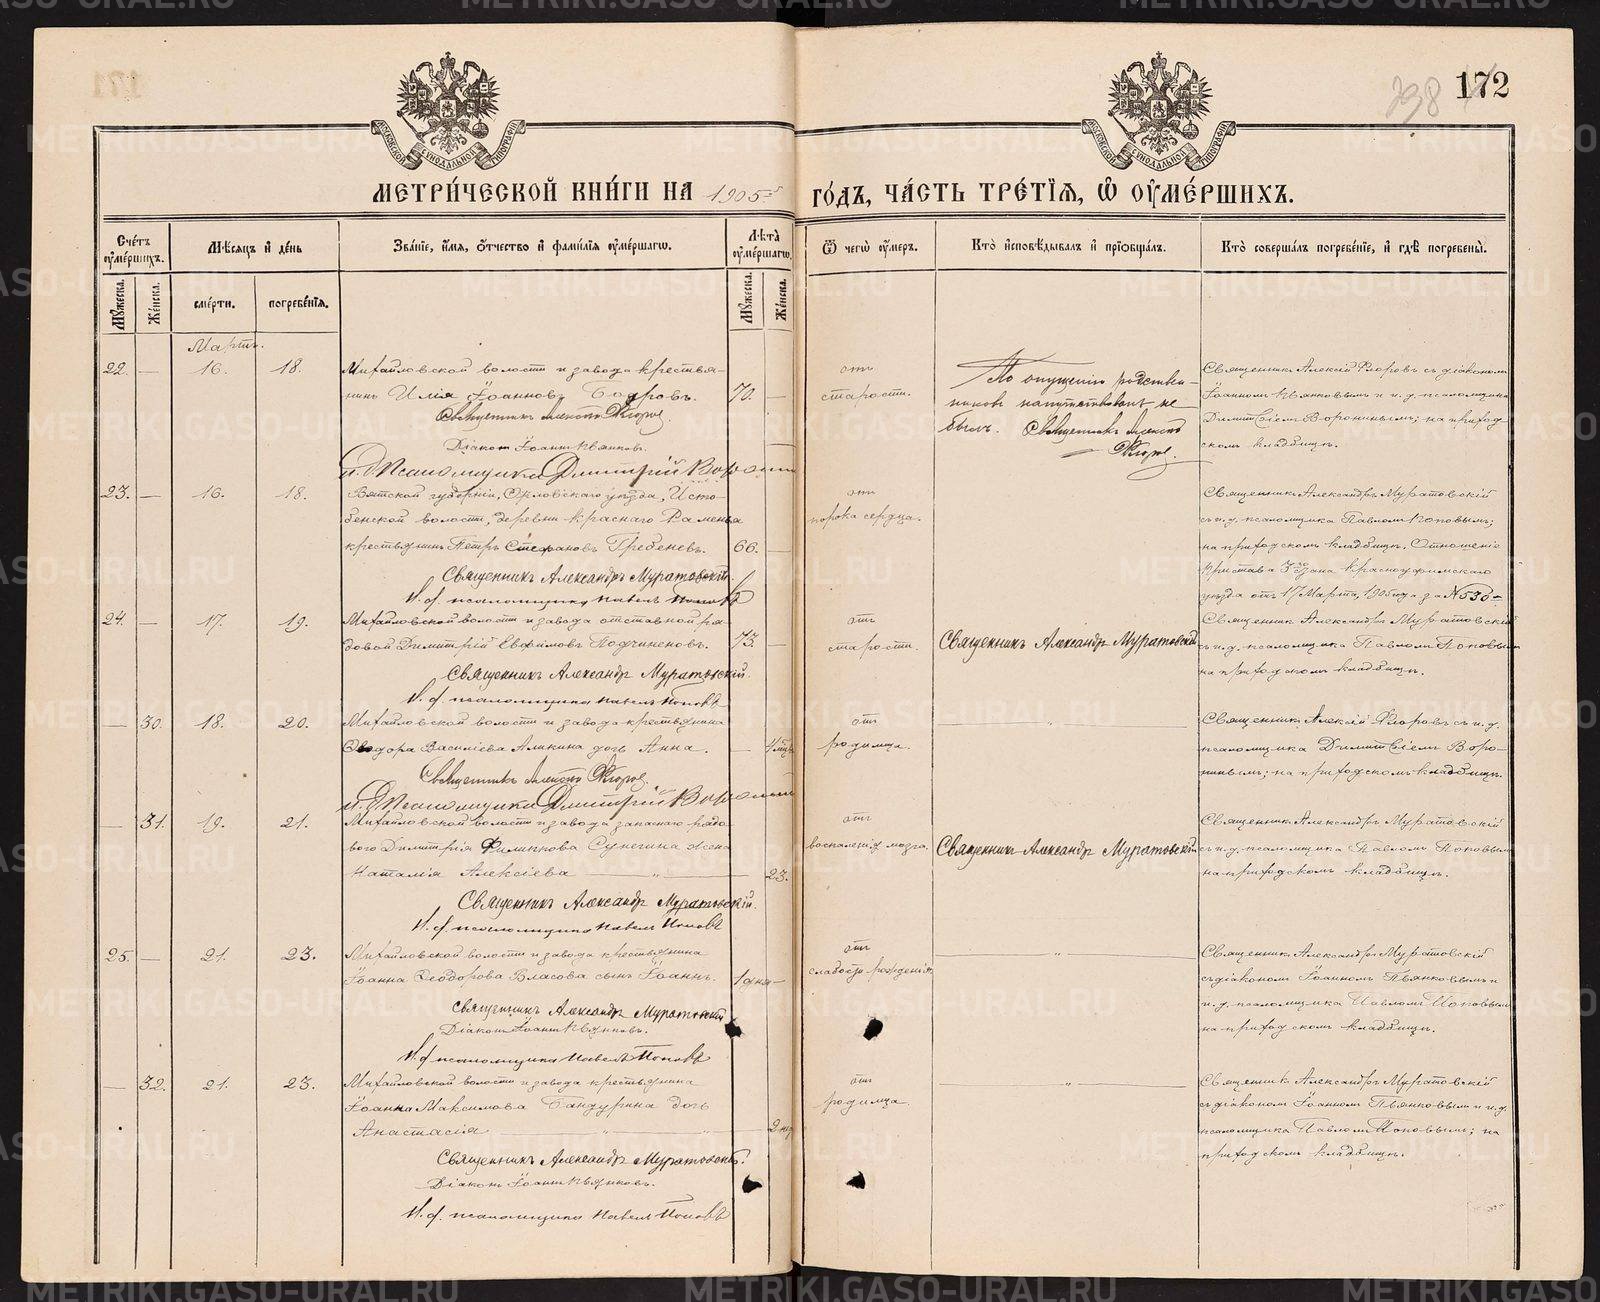 172
МОСКОВСКОЙ СѴНОДАЛЬНОЙ ТИПОГРАФІИ
МОСКОВСКОЙ СѴНОДАЛЬНОЙ ТИПОГРАФІИ
МЕТРИ́ЧЕСКОЙ КНИ́ГИ НА 1905 ГО́ДЪ, ЧА́СТЬ ТРЕ́ТІЯ, Ѿ ОУМЕ́РШИХЪ.
Сче́тъ оуме́ршихъ.
Мѣ́сяцъ и де́нь
Зва́ніе, и́мя, о́тчество и фами́лія оуме́ршагѡ.
Лѣ́та оуме́ршагѡ.
Ѿ чегѡ̀ оу́меръ.
Кто̀ исповѣ́дывалъ и прїѡбща́лъ.
Кто̀ соверша́лъ погребе́ніе, и гдѣ̀ погребены̀.
Мꙋ́жеска.
Же́нска.
сме́рти.
погребе́нія.
Мꙋ́жеска.
Же́нска.
Мартъ.
22. — 16. 18.
Михайловской волости и завода крестья-
нинъ Илія Іоанновъ Бодровъ. 70. —
Священникъ Алексій Флоровъ.
Діаконъ Іоаннъ Пьянковъ.
и. д. Псаломщика Димитрій Воронинъ
отъ
старости.
По опущенію родствен-
никовъ напутствованъ не
былъ. Священникъ Алексій
Флоровъ.
Священникъ Алексій Флоровъ съ діакономъ
Іоанномъ Пьянковымъ и и. д. псаломщика
Димитріемъ Воронинымъ; на приход-
скомъ кладбищѣ.
23. — 16. 18.
Вятской губерніи, Орловскаго уѣзда, Исто-
бенской волости, деревни Краснаго Раменья
крестьянинъ Петръ Стефановъ Гребеневъ. 66. —
Священникъ Александръ Муратовскій.
И. д. псаломщика Павелъ Поповъ
отъ
порока сердца.
Священникъ Александръ Муратовскій
съ и. д. псаломщика Павломъ Поповымъ;
на приходскомъ кладбищѣ. Отношеніе
Пристава 3го стана Красноуфимскаго
уѣзда отъ 17 Марта, 1905 года за № 530
24. — 17. 19.
Михайловской волости и завода отставной ря-
довой Димитрій Евфимовъ Подчиненовъ. 73. —
Священникъ Александръ Муратовскій.
И. д. псаломщика Павелъ Поповъ
отъ
старости.
Священникъ Александръ Муратовскій
Священникъ Александръ Муратовскій
съ и. д. псаломщика Павломъ Поповымъ
на приходскомъ кладбищѣ.
— 30. 18. 20.
Михайловской волости и завода крестьянина
Ѳеодора Василіева Аликина дочь Анна. — 4 мѣс.
Священникъ Алексій Флоровъ.
и. д. Псаломщика Димитрій Воронинъ
отъ
родимца.
Священникъ Алексій Флоровъ съ и. д.
псаломщика Димитріемъ Воро-
нинымъ; на приходскомъ кладбищѣ.
— 31. 19. 21.
Михайловской волости и завода запаснаго рядо-
вого Димитрія Филиппова Сунегина жена
Наталія Алексіева — „ — 23.
Священникъ Александръ Муратовскій.
И. д. псаломщика Павелъ Поповъ
отъ
воспаленія мозга.
Священникъ Александръ Муратовскій
Священникъ Александръ Муратовскій
съ и. д. псаломщика Павломъ Поповымъ
на приходскомъ кладбищѣ.
25. — 21. 23.
Михайловской волости и завода крестьянина
Іоанна Ѳеодорова Власова сынъ Іоаннъ. 1 дня —
Священникъ Александръ Муратовскій
Діаконъ Іоаннъ Пьянковъ.
И. д. псаломщика Павелъ Поповъ
отъ
слабости рожденія.
Священникъ Александръ Муратовскій
съ діакономъ Іоанномъ Пьянковымъ и
и. д. псаломщика Павломъ Поповымъ
на приходскомъ кладбищѣ.
— 32. 21. 23.
Михайловской волости и завода крестьянина
Іоанна Максимова Бандурина дочь
Анастасія — „ — 2 нед
Священникъ Александръ Муратовскій.
Діаконъ Іоаннъ Пьянковъ.
И. д. псаломщика Павелъ Поповъ
отъ
родимца.
Священникъ Александръ Муратовскій
съ діакономъ Іоанномъ Пьянковымъ и и. д.
псаломщика Павломъ Поповымъ; на
приходскомъ кладбищѣ.
METRIKI.GASO-URAL.RU